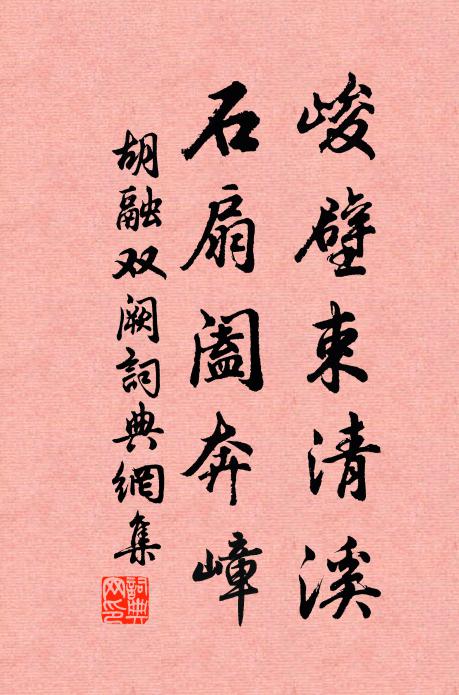 峻壁束清溪
石扇阖奔嶂
胡融双阙詞典網集
詞典網印